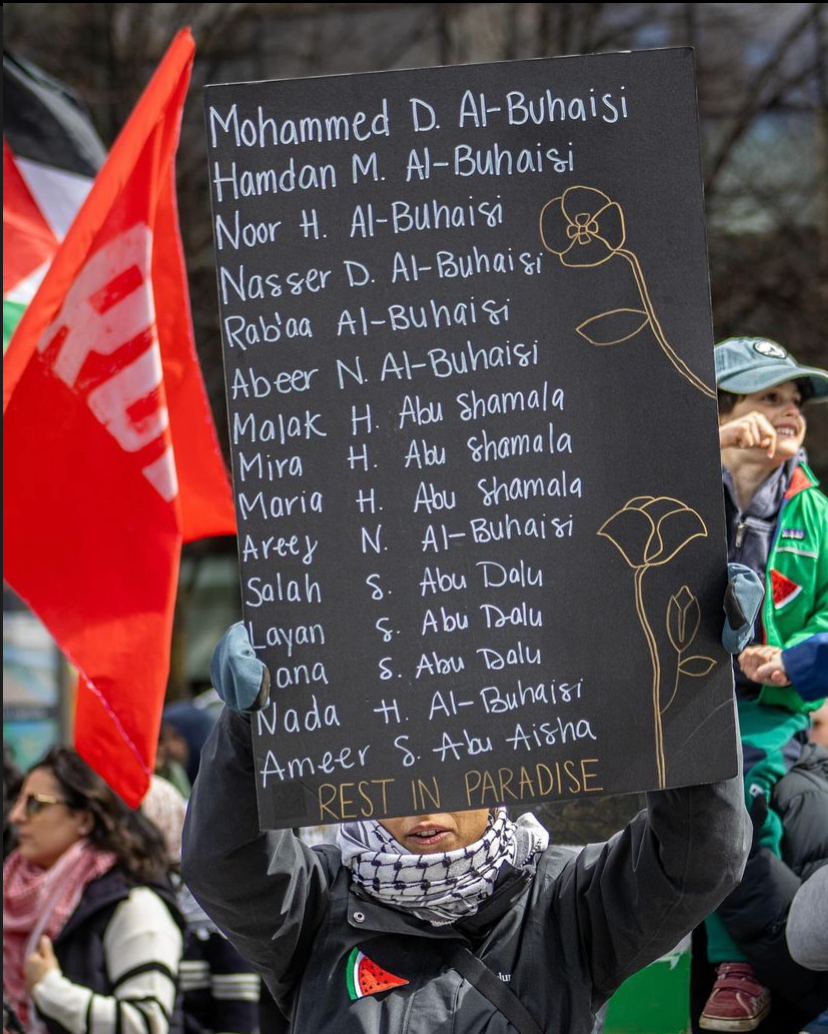 Mohammed D. Al-Buhaisi
Hamdan M. Al-Buhaisi
Noor H. Al-Buhaisi
Nasser D. Al-Buhaisi
Rab'aa Al-Buhaisi
Abeer N. Al-Buhaisi
Malak H. Abu Shamala
Mira H. Abu Shamala
Maria H. Abu Shamala
Areej N. Al-Buhaisi
Salah S. Abu Dalu
Layan S. Abu Dalu
ana S. Abu Dalu
Nada H. Al-Buhaisi
Ameer S. Abu Aisha
REST IN PARADISE